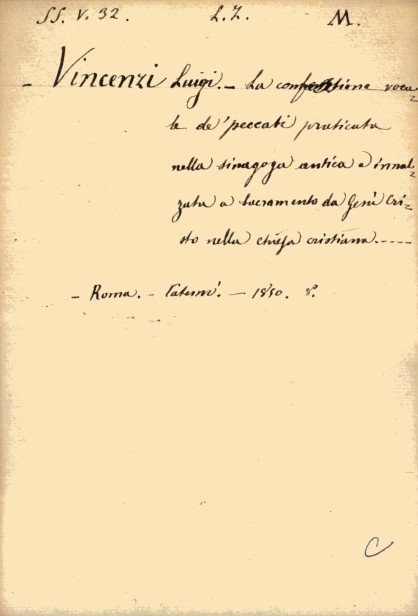 SS. V. 32. L. Z. M.
- Vincenzi Luigi. - La confessione voca=
le de' peccati praticata
nella sinagoga antica e innal=
zata a sacramento da Gesù Cri=
sto nella chiesa cristiana.----
- Roma. - - 1850. 8º.
C